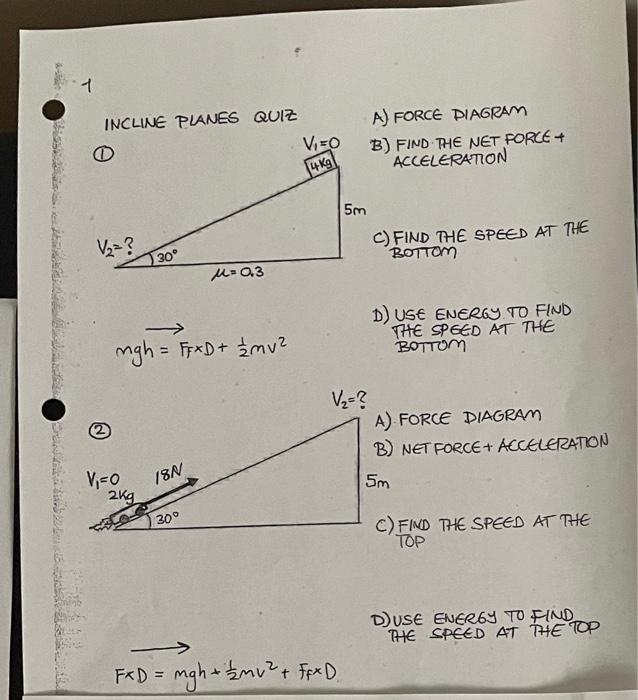 1
INCLINE PLANES QUIZ
①
V₁=0
4Kg
5m
V₂=?
30°
μ=0.3
A) FORCE DIAGRAM
B) FIND THE NET FORCE +
ACCELERATION
C) FIND THE SPEED AT THE
BOTTOM
D) USE ENERGY TO FIND
THE SPEED AT THE
BOTTOM
mgh = FF×D + ½mv²
②
V₂=?
V₁=0
2Kg
18N
30°
5m
A) FORCE DIAGRAM
B) NET FORCE + ACCELERATION
C) FIND THE SPEED AT THE
TOP
D) USE ENERGY TO FIND
THE SPEED AT THE TOP
F×D = mgh + ½mv² + FF×D